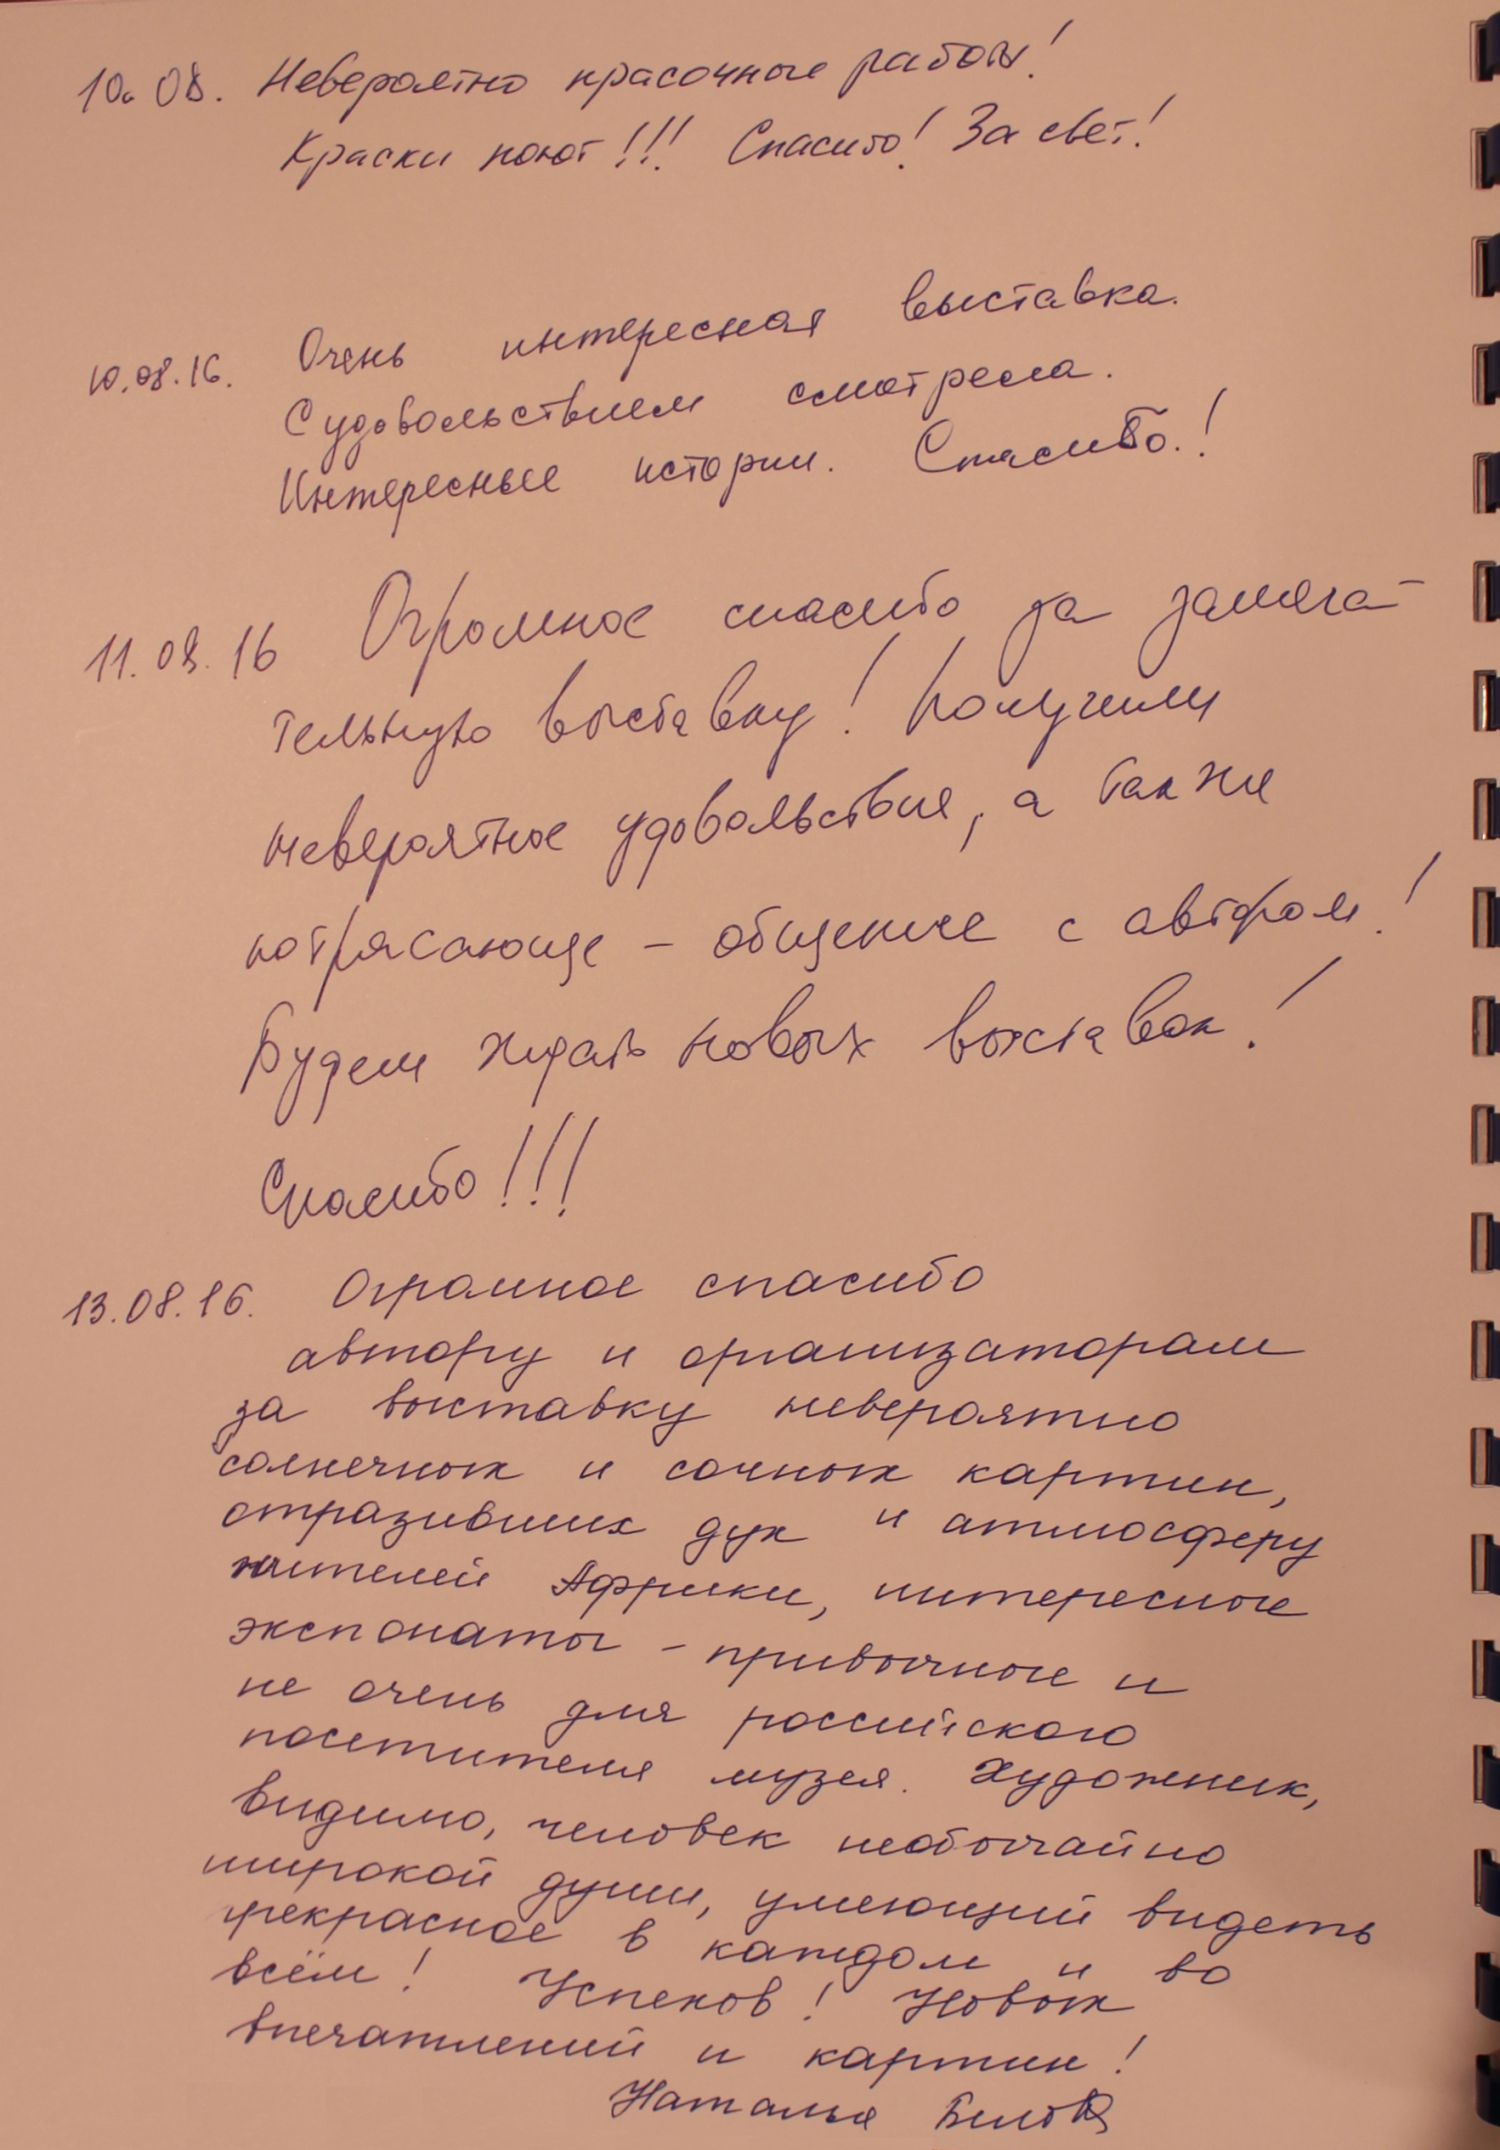 10.08. Невероятно красочные работы!
Краски поют!!! Спасибо! За свет!
10.08.16. Очень интересная выставка.
С удовольствием смотрела.
Интересные истории. Спасибо.!
11.08.16 Огромное спасибо за замеча-
тельную выставку! Получили
невероятное удовольствие, а также
потрясающе - общение с автором!
Будем ждать новых выставок!
Спасибо!!!
13.08.16. Огромное спасибо
автору и организаторам
за выставку невероятно
солнечных и сочных картин,
отразивших дух и атмосферу
жителей Африки, интересные
экспонаты - привычные и
не очень для российского
посетителя музея. Художник,
видимо, человек необычайно
широкой души, умеющий видеть
прекрасное в каждом и во
всём! Успехов! Новых
впечатлений и картин!
Наталья